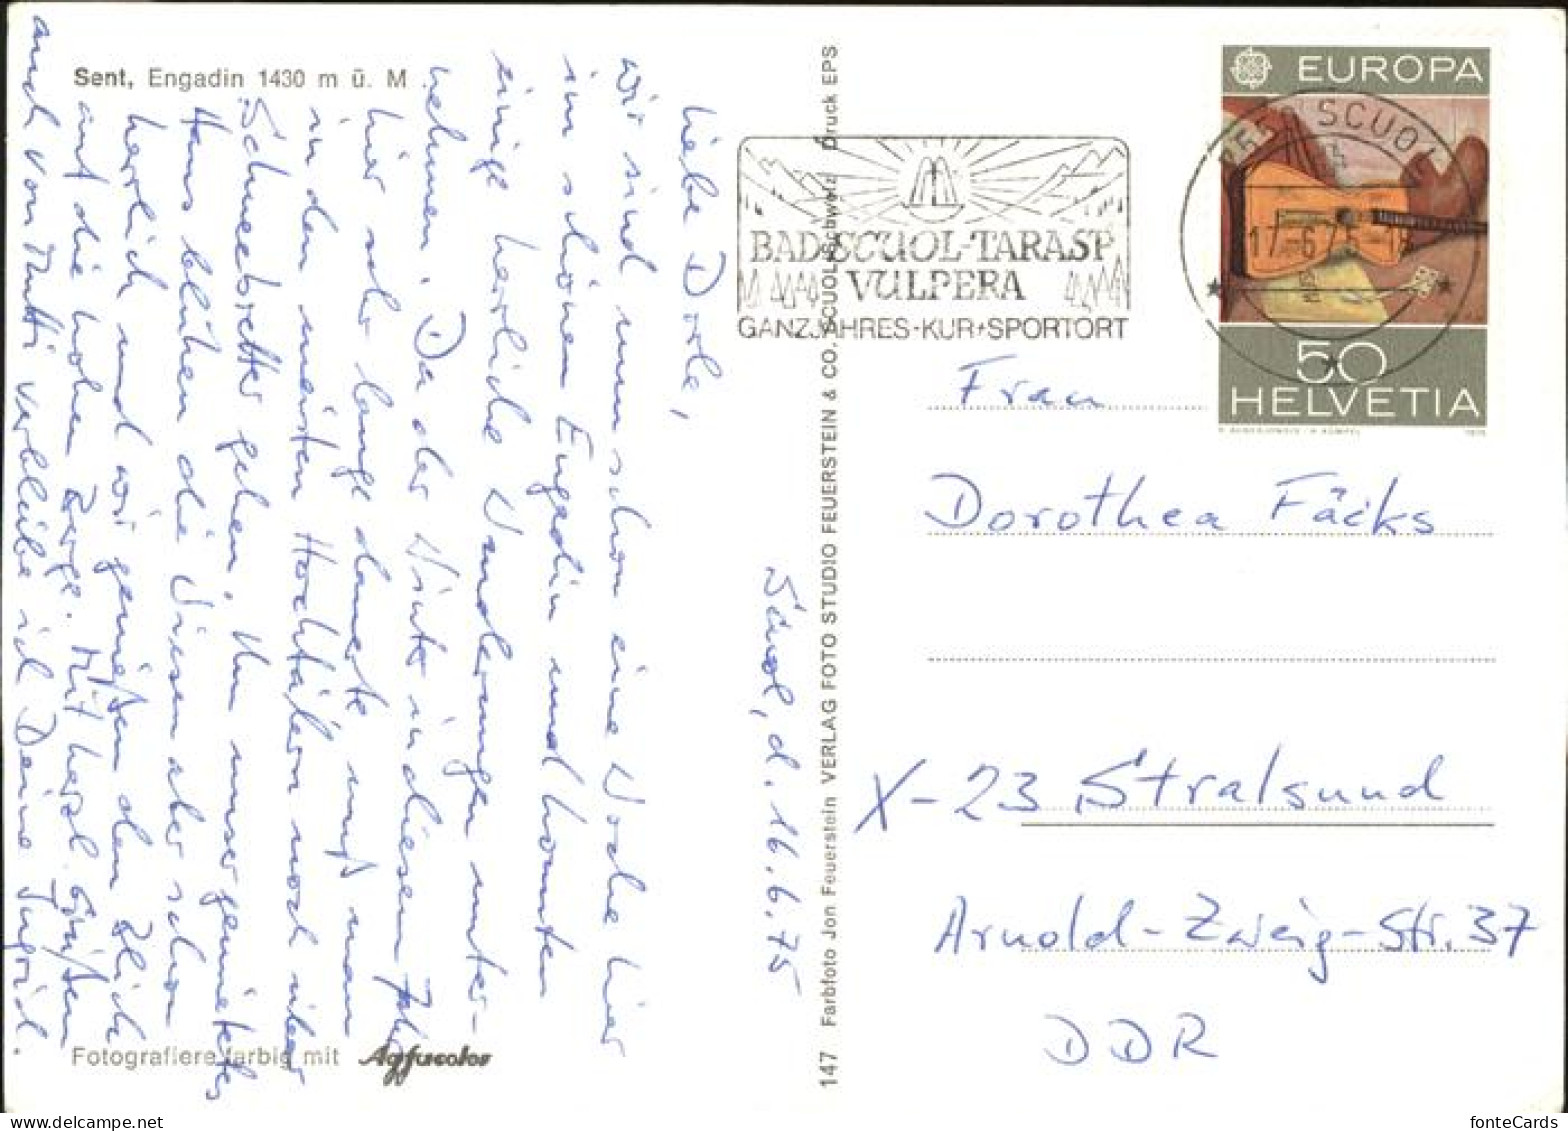 Sent, Engadin 1430 m ü. M
Liebe Dorle,
wir sind nun schon eine Woche hier
im schönen Engadin und konnten
einige herrliche Wanderungen unter-
nehmen. Da der Winter in diesem Jahr
hier sehr lange dauerte muß man
in den meisten Hochtälern noch über
Schneebretter gehen. Um unser gemietetes
Haus blühen die Wiesen aber schon
herrlich und wir genießen den Blick
auf die hohen Berge. Mit herzl. Grüßen
auch von Mutti verbleibe ich Deine Ingrid.
Fotografiere farbig mit Agfacolor
Scuol, d. 16.6.75
147 Farbfoto Jon Feuerstein VERLAG FOTO STUDIO FEUERSTEIN & CO. SCUOL Schweiz Druck EPS
BAD SCUOL-TARASP
VULPERA
GANZJAHRES-KUR+SPORTORT
EUROPA
SCUOL
17-6-75
50
HELVETIA
1975
Frau
Dorothea Fäcks
X-23 Stralsund
Arnold-Zweig-Str. 37
DDR
fonteCards